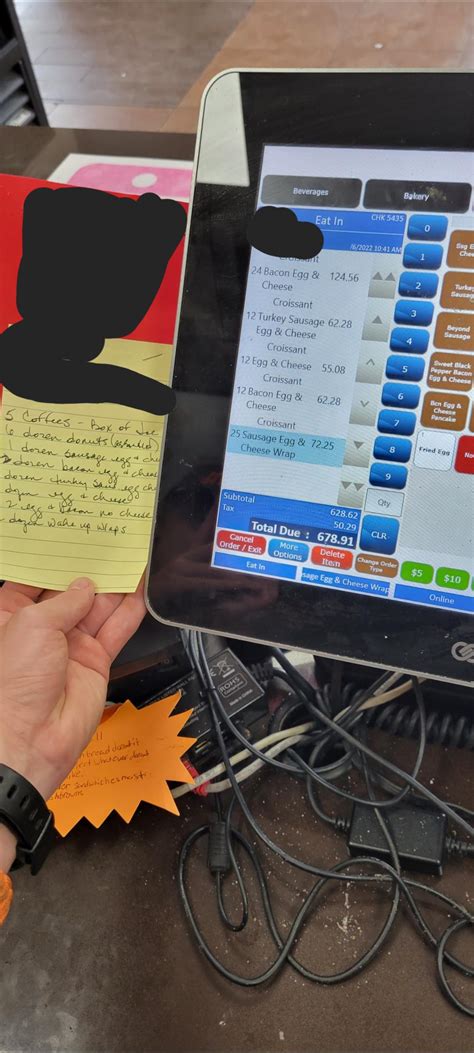 Beverages
Bakery
Eat In
CHK 5435
/6/2022 10:41 AM
Croissant
24 Bacon Egg & 124.56
Cheese
Croissant
12 Turkey Sausage 62.28
Egg & Cheese
Croissant
12 Egg & Cheese 55.08
Croissant
12 Bacon Egg & 62.28
Cheese
Croissant
25 Sausage Egg & 72.25
Cheese Wrap
Subtotal 628.62
Tax 50.29
Total Due : 678.91
Cancel
Order / Exit
More
Options
Delete
Item
Change Order
Type
Eat In
sage Egg & Cheese Wrap
Online
$5
$10
0
1
2
3
4
5
6
7
8
9
Qty
CLR
Turkey
Sausage
Beyond
Sausage
Sweet Black
Pepper Bacon
Egg & Cheese
Bcn Egg &
Cheese
Pancake
Fried Egg
5 Coffees - Box of
6 dozen donuts (assorted)
1 dozen sausage egg &
dozen bacon egg &
dozen turkey egg
egg & cheese
egg & no cheese
wake up wraps
ROHS